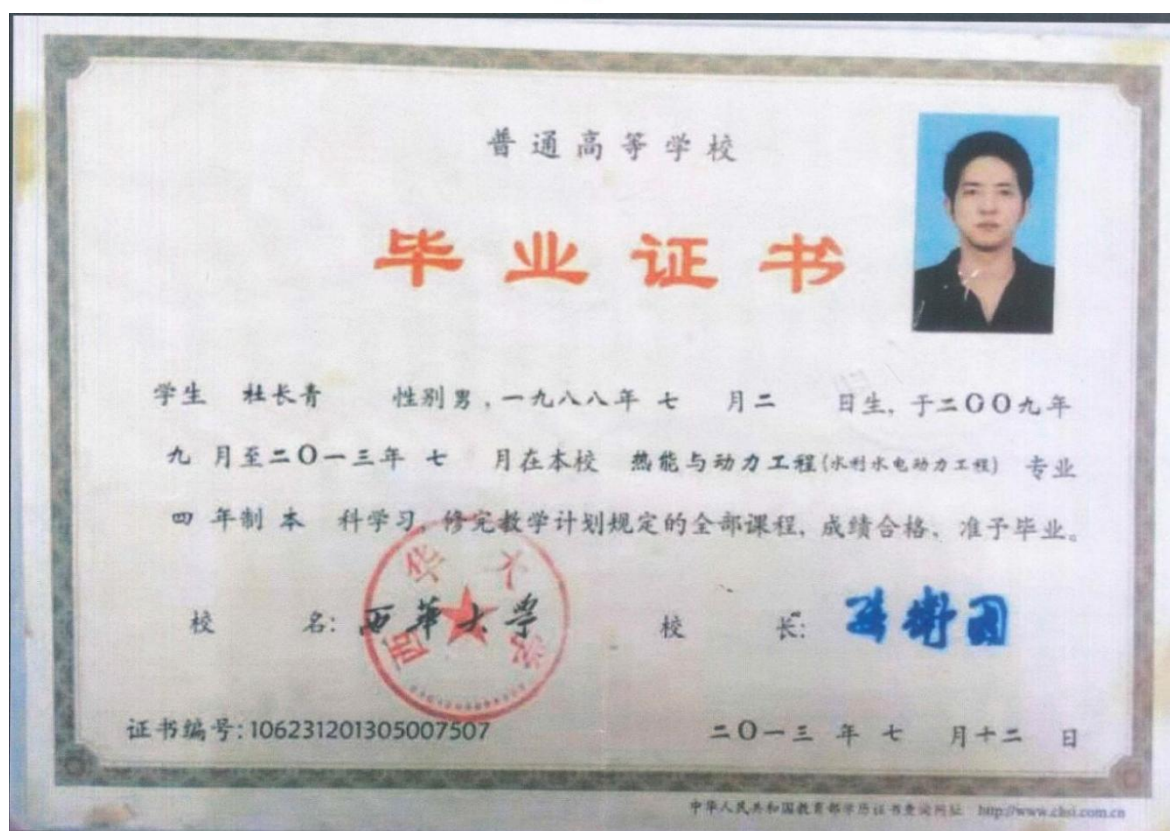 普通高等学校
毕业证书
学生 杜长青 性别男，一九八八年 七 月二 日生，于二〇〇九年
九 月至二〇一三年 七 月在本校 热能与动力工程(水利水电动力工程) 专业
四 年制 本 科学习，修完教学计划规定的全部课程，成绩合格，准予毕业。
校 名：西华大学 校 长：
西华大学
证书编号：106231201305007507 二〇一三 年 七 月十二 日
中华人民共和国教育部学历证书查询网址 http://www.chsi.com.cn